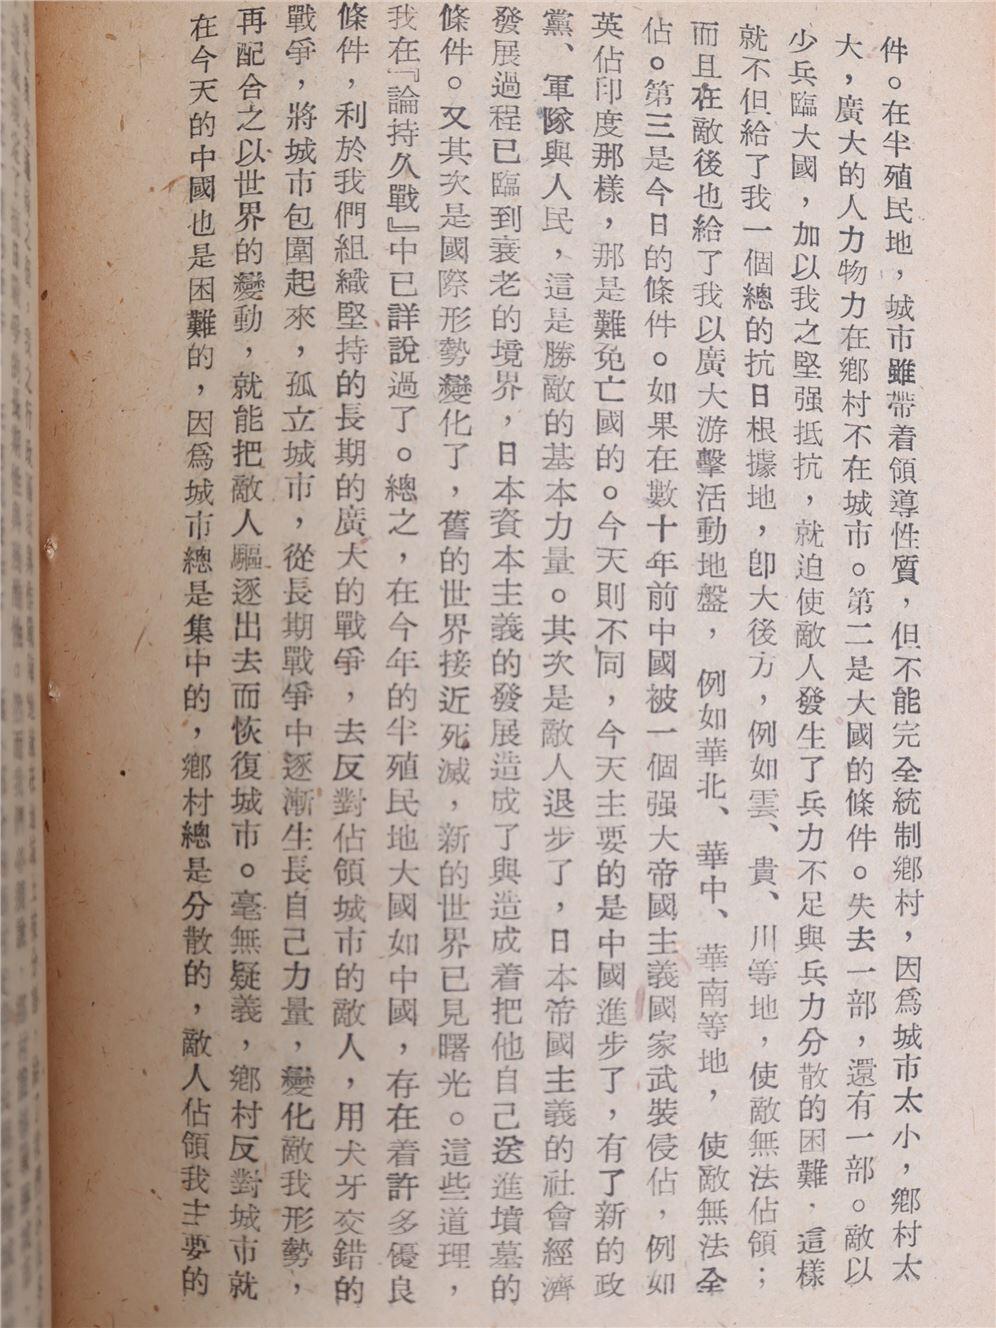 件。在半殖民地，城市雖帶着領導性質，但不能完全統制鄉村，因爲城市太小，鄉村太
大，廣大的人力物力在鄉村不在城市。第二是大國的條件。失去一部，還有一部。敵以
少兵臨大國，加以我之堅强抵抗，就迫使敵人發生了兵力不足與兵力分散的困難，這樣
就不但給了我一個總的抗日根據地，卽大後方，例如雲、貴、川等地，使敵無法佔領；
而且在敵後也給了我以廣大游擊活動地盤，例如華北、華中、華南等地，使敵無法全
佔。第三是今日的條件。如果在數十年前中國被一個强大帝國主義國家武裝侵佔，例如
英佔印度那樣，那是難免亡國的。今天則不同，今天主要的是中國進步了，有了新的政
黨、軍隊與人民，這是勝敵的基本力量。其次是敵人退步了，日本帝國主義的社會經濟
發展過程已臨到衰老的境界，日本資本主義的發展造成了與造成着把他自己送進墳墓的
條件。又其次是國際形勢變化了，舊的世界接近死滅，新的世界已見曙光。這些道理，
我在『論持久戰』中已詳說過了。總之，在今年的半殖民地大國如中國，存在着許多優良
條件，利於我們組織堅持的長期的廣大的戰爭，去反對佔領城市的敵人，用犬牙交錯的
戰爭，將城市包圍起來，孤立城市，從長期戰爭中逐漸生長自己力量，變化敵我形勢，
再配合之以世界的變動，就能把敵人驅逐出去而恢復城市。毫無疑義，鄉村反對城市就
在今天的中國也是困難的，因爲城市總是集中的，鄉村總是分散的，敵人佔領我主要的